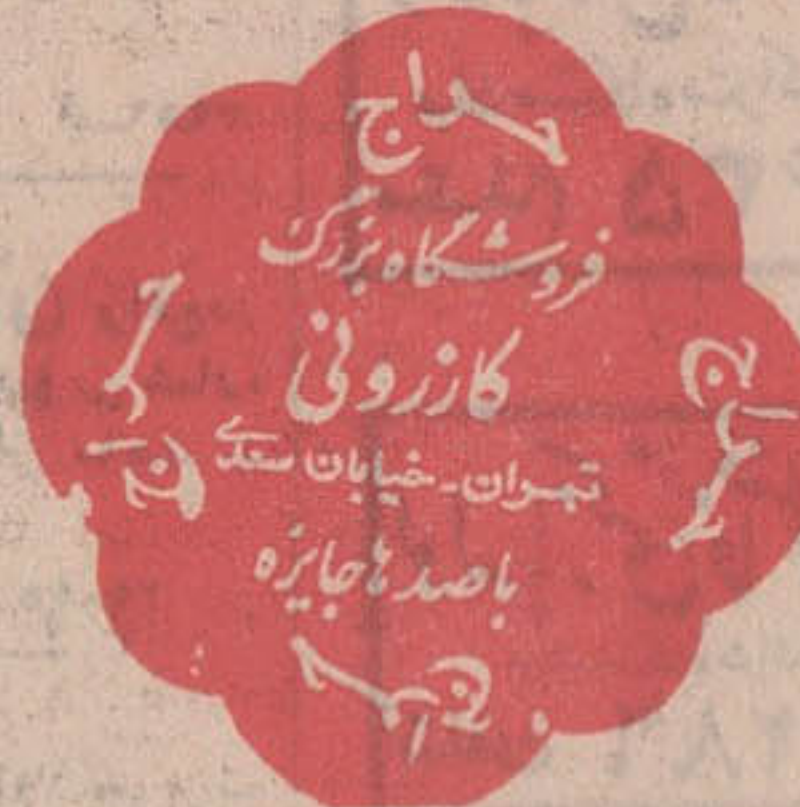 حراج
فروشگاه بزرگ
کازرونی
تهران - خیابان سعدی
با صدها جایزه
حراج
حراج
حراج